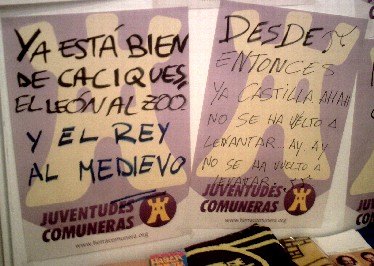 YA ESTÁ BIEN
DE CACIQUES,
EL LEÓN AL ZOO
Y EL REY
AL MEDIEVO
JUVENTUDES
COMUNERAS
www.tierracomunera.org
DESDE
ENTONCES
YA CASTILLA
NO SE HA VUELTO A
LEVANTAR.. AY, AY
NO SE HA VUELTO A
LEVATAR
JUVENTUDES
COMUNERAS
www.tierracomunera.org